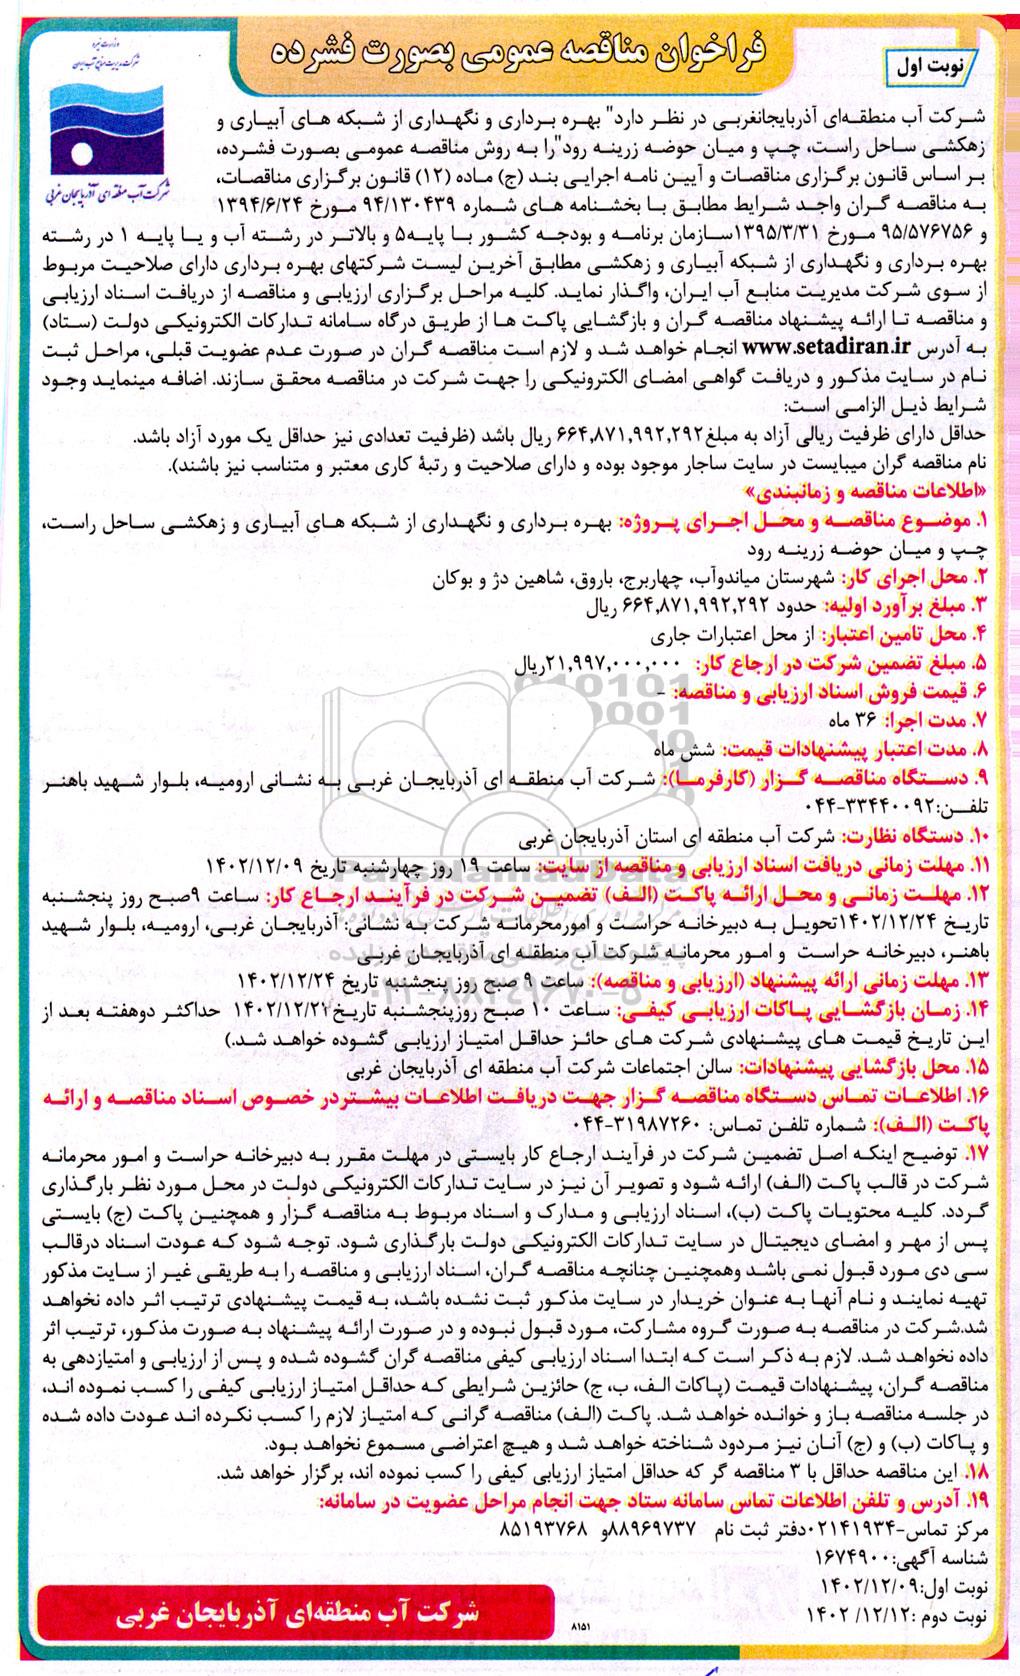 فراخوان مناقصه عمومی بصورت فشرده
نوبت اول
وزارت نیرو
شرکت مدیریت منابع آب ایران
شرکت آب منطقه ای آذربایجان غربی
شرکت آب منطقه‌ای آذربایجانغربی در نظر دارد" بهره برداری و نگهداری از شبکه های آبیاری و
زهکشی ساحل راست، چپ و میان حوضه زرینه رود"را به روش مناقصه عمومی بصورت فشرده،
بر اساس قانون برگزاری مناقصات و آیین نامه اجرایی بند (ج) ماده (۱۲) قانون برگزاری مناقصات،
به مناقصه گران واجد شرایط مطابق با بخشنامه های شماره ۹۴/۱۳۰۴۳۹ مورخ ۱۳۹۴/۶/۲۴
و ۹۵/۵۷۶۷۵۶ مورخ ۱۳۹۵/۳/۳۱سازمان برنامه و بودجه کشور با پایه۵ و بالاتر در رشته آب و یا پایه ۱ در رشته
بهره برداری و نگهداری از شبکه آبیاری و زهکشی مطابق آخرین لیست شرکتهای بهره برداری دارای صلاحیت مربوط
از سوی شرکت مدیریت منابع آب ایران، واگذار نماید. کلیه مراحل برگزاری ارزیابی و مناقصه از دریافت اسناد ارزیابی
و مناقصه تا ارائه پیشنهاد مناقصه گران و بازگشایی پاکت ها از طریق درگاه سامانه تدارکات الکترونیکی دولت (ستاد)
به آدرس www.setadiran.ir انجام خواهد شد و لازم است مناقصه گران در صورت عدم عضویت قبلی، مراحل ثبت
نام در سایت مذکور و دریافت گواهی امضای الکترونیکی را جهت شرکت در مناقصه محقق سازند. اضافه مینماید وجود
شرایط ذیل الزامی است:
حداقل دارای ظرفیت ریالی آزاد به مبلغ۶۶۴,۸۷۱,۹۹۲,۲۹۲ ریال باشد (ظرفیت تعدادی نیز حداقل یک مورد آزاد باشد.
نام مناقصه گران میبایست در سایت ساجار موجود بوده و دارای صلاحیت و رتبهٔ کاری معتبر و متناسب نیز باشند).
«اطلاعات مناقصه و زمانبندی»
۱. موضوع مناقصه و محل اجرای پروژه: بهره برداری و نگهداری از شبکه های آبیاری و زهکشی ساحل راست،
چپ و میان حوضه زرینه رود
۲. محل اجرای کار: شهرستان میاندوآب، چهاربرج، باروق، شاهین دژ و بوکان
۳. مبلغ برآورد اولیه: حدود ۶۶۴,۸۷۱,۹۹۲,۲۹۲ ریال
۴. محل تامین اعتبار: از محل اعتبارات جاری
۵. مبلغ تضمین شرکت در ارجاع کار: ۲۱,۹۹۷,۰۰۰,۰۰۰ریال
۶. قیمت فروش اسناد ارزیابی و مناقصه: -
۷. مدت اجرا: ۳۶ ماه
۸. مدت اعتبار پیشنهادات قیمت: شش ماه
۹. دستگاه مناقصه گزار (کارفرما): شرکت آب منطقه ای آذربایجان غربی به نشانی ارومیه، بلوار شهید باهنر
تلفن:۳۳۴۴۰۰۹۲-۰۴۴
۱۰. دستگاه نظارت: شرکت آب منطقه ای استان آذربایجان غربی
۱۱. مهلت زمانی دریافت اسناد ارزیابی و مناقصه از سایت: ساعت ۱۹ روز چهارشنبه تاریخ ۱۴۰۲/۱۲/۰۹
۱۲. مهلت زمانی و محل ارائه پاکت (الف) تضمین شرکت در فرآیند ارجاع کار: ساعت ۹صبح روز پنجشنبه
تاریخ ۱۴۰۲/۱۲/۲۴تحویل به دبیرخانه حراست و امورمحرمانه شرکت به نشانی: آذربایجان غربی، ارومیه، بلوار شهید
باهنر، دبیرخانه حراست و امور محرمانه شرکت آب منطقه ای آذربایجان غربی
۱۳. مهلت زمانی ارائه پیشنهاد (ارزیابی و مناقصه): ساعت ۹ صبح روز پنجشنبه تاریخ ۱۴۰۲/۱۲/۲۴
۱۴. زمان بازگشایی پاکات ارزیابی کیفی: ساعت ۱۰ صبح روزپنجشنبه تاریخ ۱۴۰۲/۱۲/۲۴ حداکثر دوهفته بعد از
این تاریخ قیمت های پیشنهادی شرکت های حائز حداقل امتیاز ارزیابی گشوده خواهد شد.)
۱۵. محل بازگشایی پیشنهادات: سالن اجتماعات شرکت آب منطقه ای آذربایجان غربی
۱۶. اطلاعات تماس دستگاه مناقصه گزار جهت دریافت اطلاعات بیشتردر خصوص اسناد مناقصه و ارائه
پاکت (الف): شماره تلفن تماس: ۳۱۹۸۷۲۶۰-۰۴۴
۱۷. توضیح اینکه اصل تضمین شرکت در فرآیند ارجاع کار بایستی در مهلت مقرر به دبیرخانه حراست و امور محرمانه
شرکت در قالب پاکت (الف) ارائه شود و تصویر آن نیز در سایت تدارکات الکترونیکی دولت در محل مورد نظر بارگذاری
گردد. کلیه محتویات پاکت (ب)، اسناد ارزیابی و مدارک و اسناد مربوط به مناقصه گزار و همچنین پاکت (ج) بایستی
پس از مهر و امضای دیجیتال در سایت تدارکات الکترونیکی دولت بارگذاری شود. توجه شود که عودت اسناد درقالب
سی دی مورد قبول نمی باشد وهمچنین چنانچه مناقصه گران، اسناد ارزیابی و مناقصه را به طریقی غیر از سایت مذکور
تهیه نمایند و نام آنها به عنوان خریدار در سایت مذکور ثبت نشده باشد، به قیمت پیشنهادی ترتیب اثر داده نخواهد
شد.شرکت در مناقصه به صورت گروه مشارکت، مورد قبول نبوده و در صورت ارائه پیشنهاد به صورت مذکور، ترتیب اثر
داده نخواهد شد. لازم به ذکر است که ابتدا اسناد ارزیابی کیفی مناقصه گران گشوده شده و پس از ارزیابی و امتیازدهی به
مناقصه گران، پیشنهادات قیمت (پاکات الف، ب، ج) حائزین شرایطی که حداقل امتیاز ارزیابی کیفی را کسب نموده اند،
در جلسه مناقصه باز و خوانده خواهد شد. پاکت (الف) مناقصه گرانی که امتیاز لازم را کسب نکرده اند عودت داده شده
و پاکات (ب) و (ج) آنان نیز مردود شناخته خواهد شد و هیچ اعتراضی مسموع نخواهد بود.
۱۸. این مناقصه حداقل با ۳ مناقصه گر که حداقل امتیاز ارزیابی کیفی را کسب نموده اند، برگزار خواهد شد.
۱۹. آدرس و تلفن اطلاعات تماس سامانه ستاد جهت انجام مراحل عضویت در سامانه:
مرکز تماس-۰۲۱۴۱۹۳۴دفتر ثبت نام ۸۸۹۶۹۷۳۷و ۸۵۱۹۳۷۶۸
شناسه آگهی:۱۶۷۴۹۰۰
نوبت اول:۱۴۰۲/۱۲/۰۹
نوبت دوم :۱۴۰۲/۱۲/۱۲
۸۱۵۱
شرکت آب منطقه‌ای آذربایجان غربی